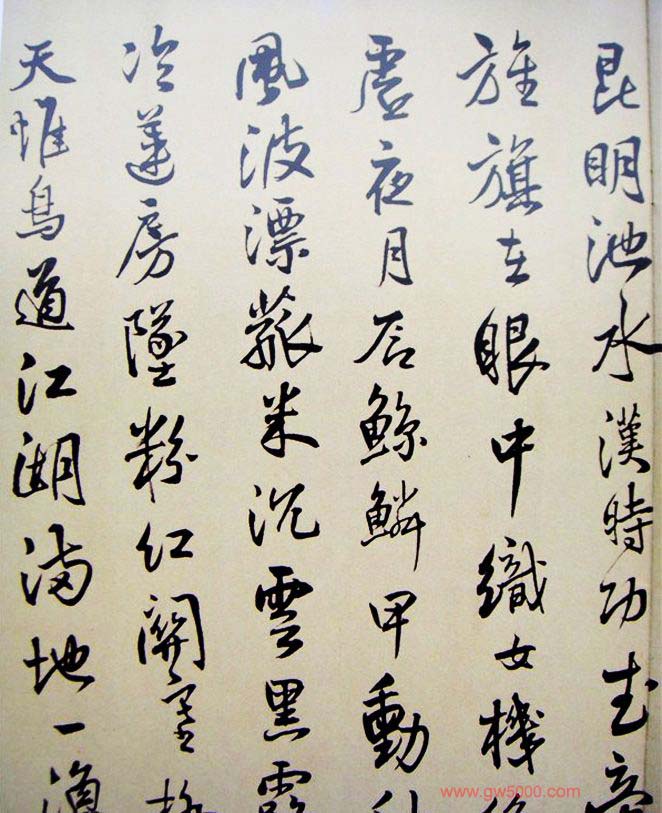 昆明池水漢時功武帝
旌旗在眼中織女機絲
虛夜月石鯨鱗甲動秋
風波漂菰米沉雲黑露
冷蓮房墜粉紅關塞極
天惟鳥道江湖滿地一漁
www.gw5000.com